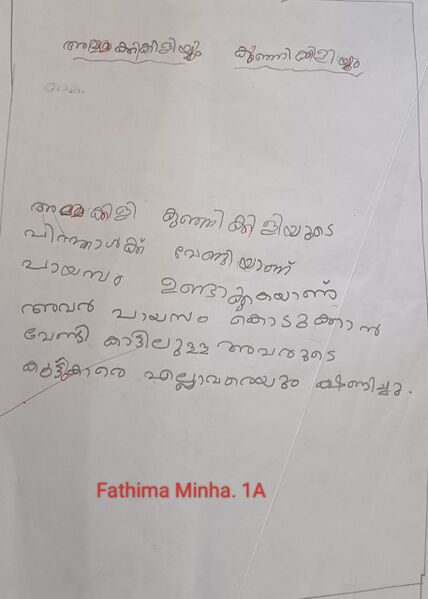 അമ്മക്കിളിയും കുഞ്ഞിക്കിളിയും
അമ്മകിളി കുഞ്ഞിക്കിളിയുടെ
പിറന്നാൾക്ക് വേണ്ടിയാണ്
പായസം ഉണ്ടാക്കുകയാണ്
അവൻ പായസം കൊടുക്കാൻ
വേണ്ടി കാട്ടിലുള്ള അവരുടെ
കൂട്ടുകാരെ എല്ലാവരെയും ക്ഷണിച്ചു.
Fathima Minha. 1A